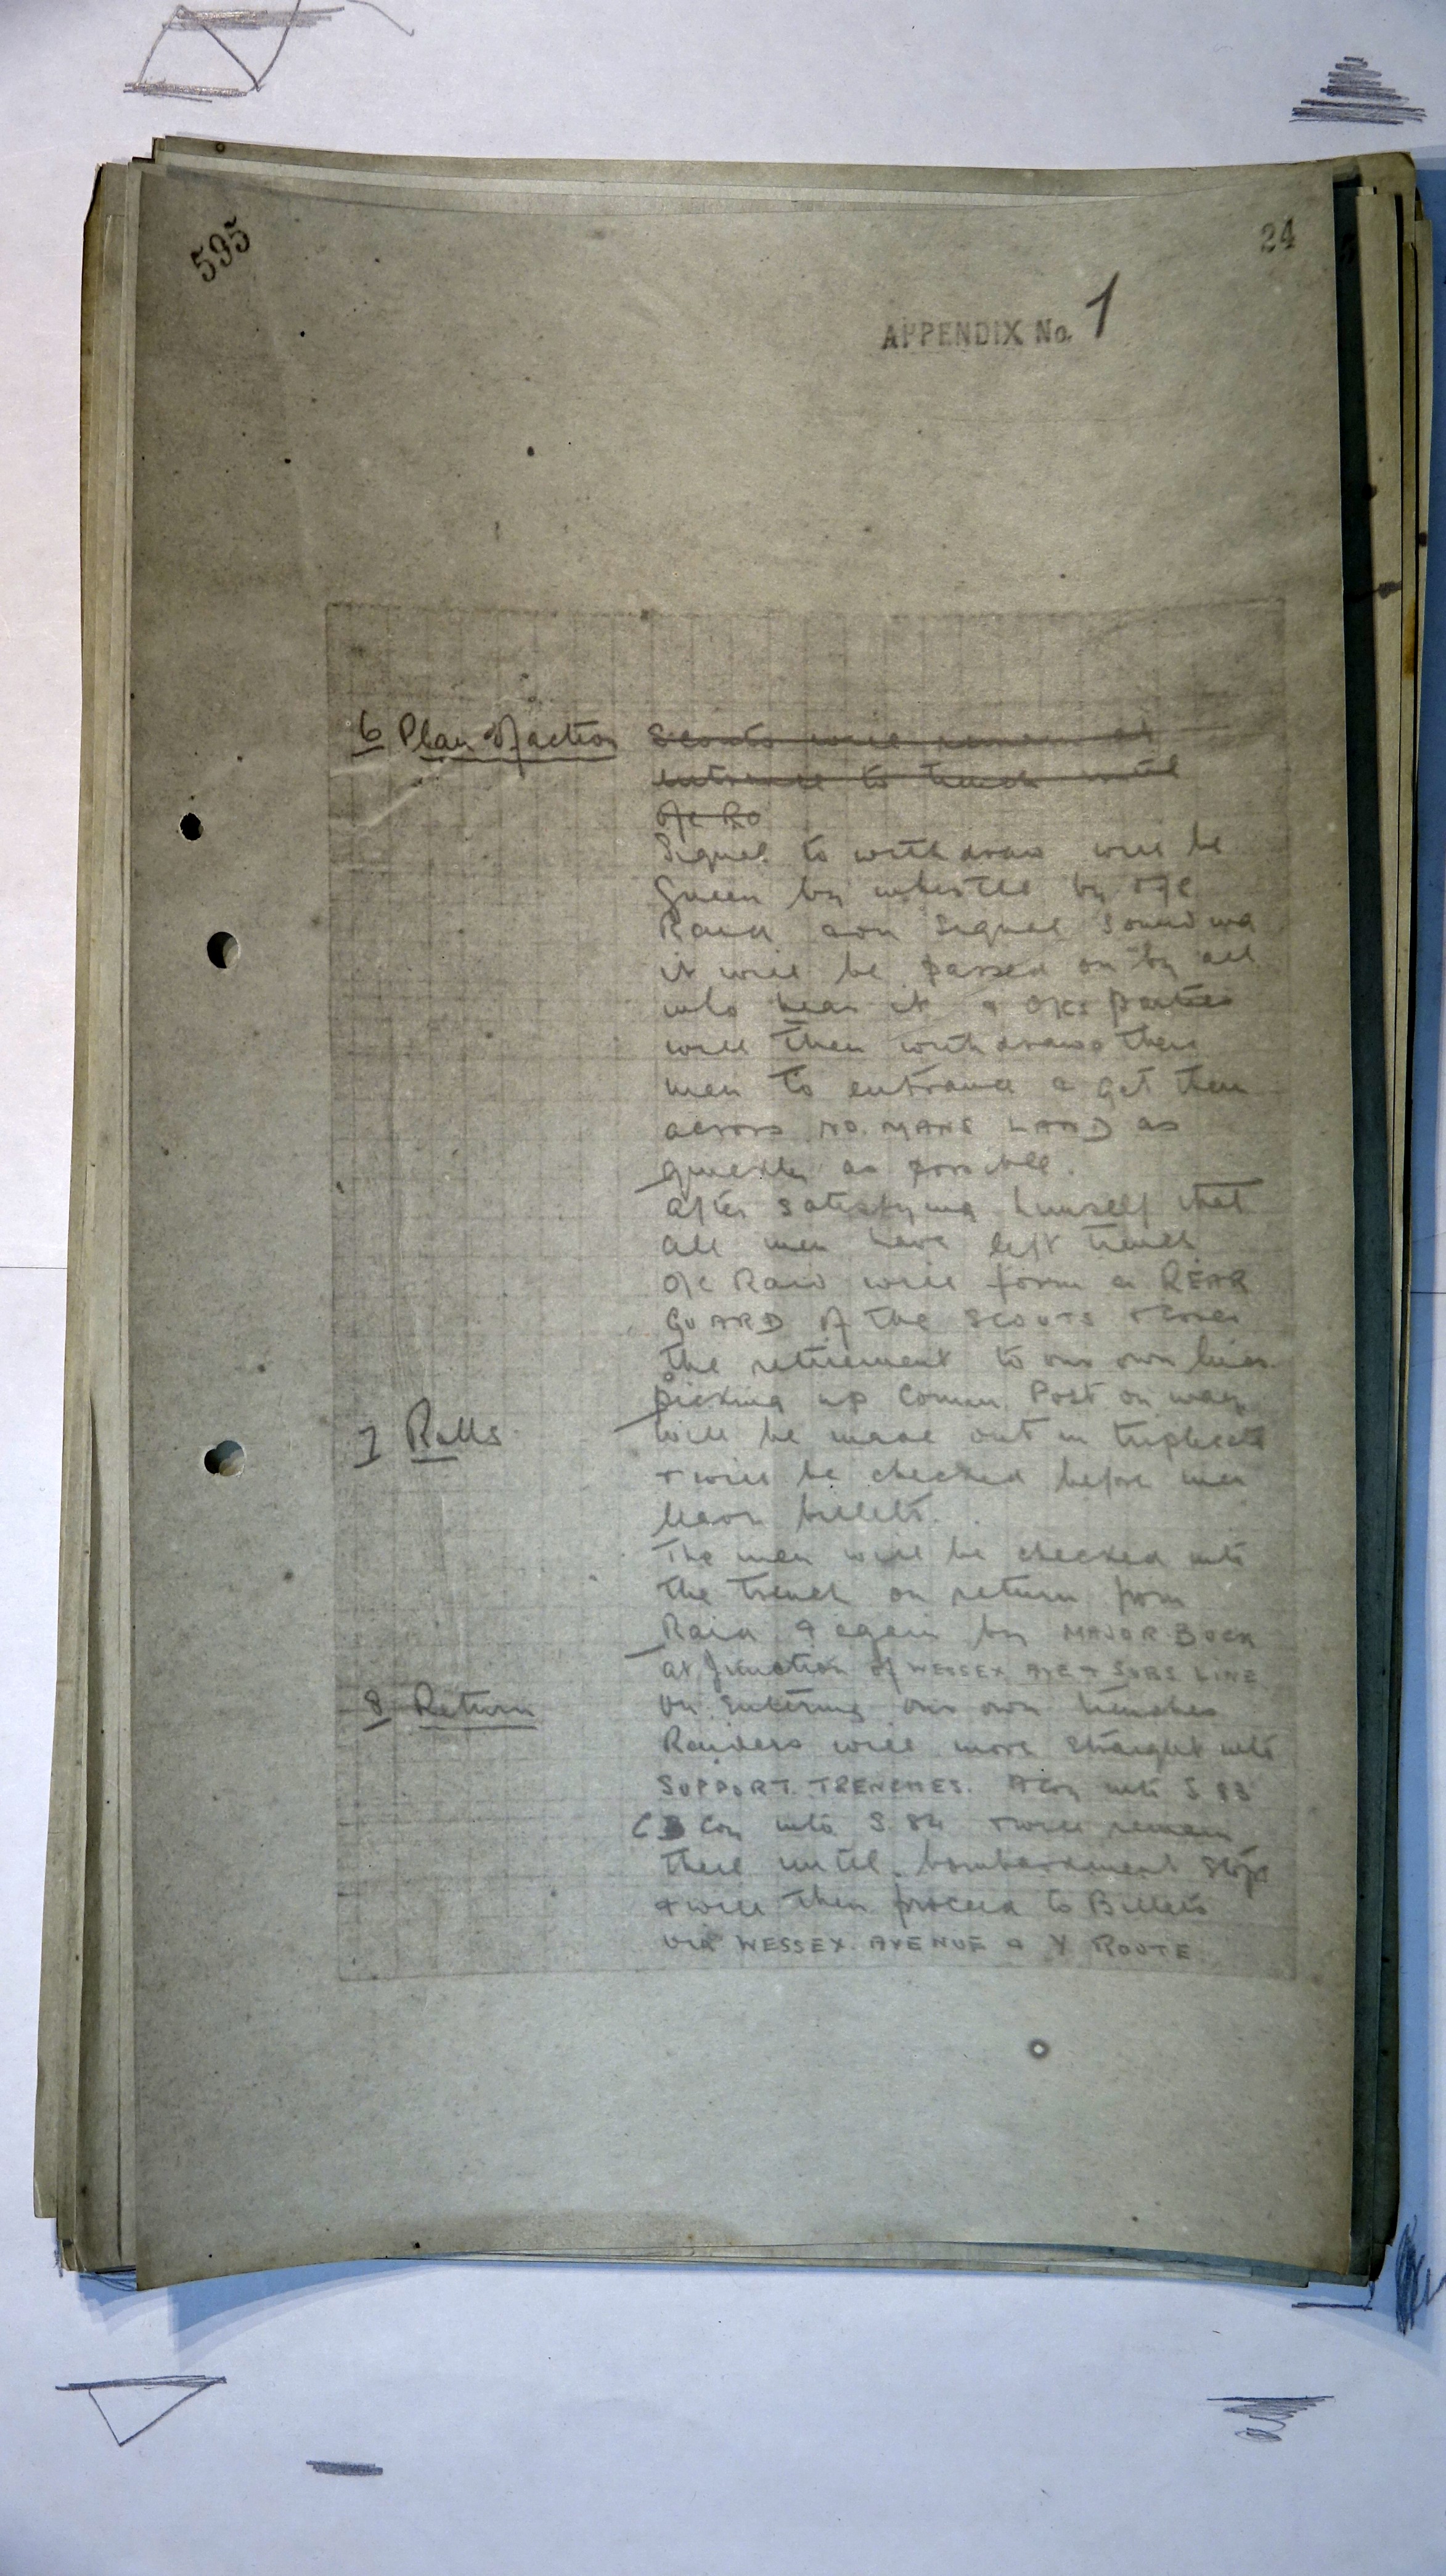 595
24
APPENDIX No. 1
6 Plan of action Scouts will remain at
entrance to trench until
O/C Ra
Signal to withdraw will be
given by whistle by O/C
Raid on signal sounding
it will be passed on by all
who hear it & O/Cs parties
will then withdraw their
men to entrance & get them
across NO MANS LAND as
quickly as possible.
After satisfying himself that
all men have left trench
O/C Raid will form a REAR
GUARD of the SCOUTS & cover
the retirement to our own lines
picking up Comm. Post on way
7 Rolls will be made out in triplicate
& will be checked before men
leave billets.
The men will be checked into
the trench on return from
Raid & again by MAJOR
at junction of WESSEX AVE & SUBS LINE
8 Return On entering our own trenches
Raiders will move straight into
SUPPORT TRENCHES. A Coy into S 83
C Coy into S 84 & will remain
there until bombardment stops
& will then proceed to Billets
via WESSEX AVENUE & Y ROUTE